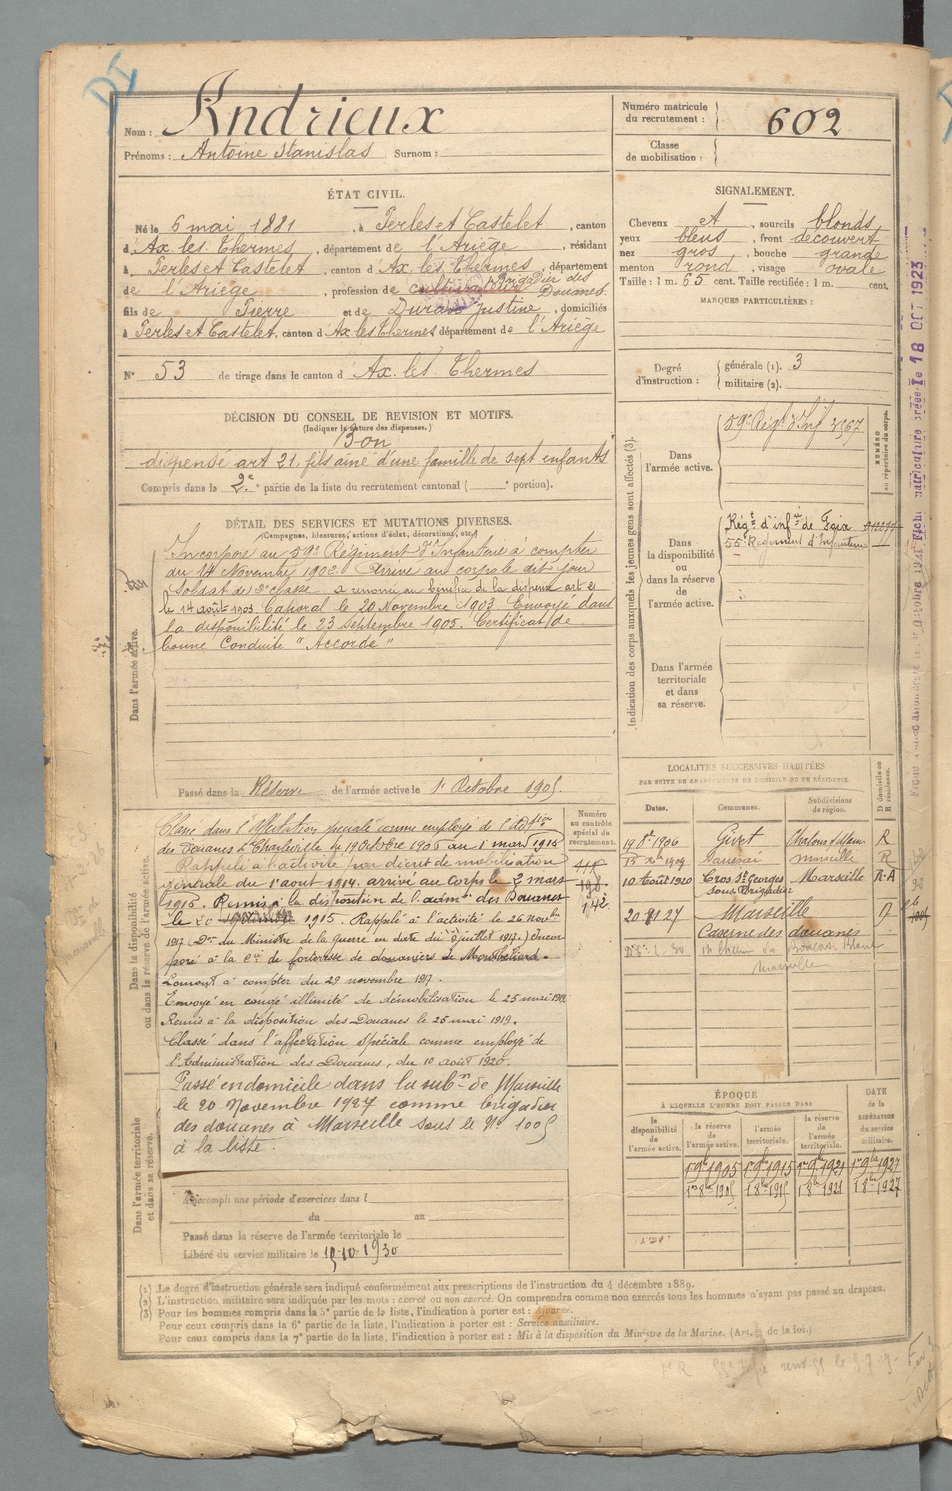 DI
Nom : Andrieux
Prénoms : Antoine Stanislas Surnom :
Numéro matricule du recrutement : 602
Classe de mobilisation :
ÉTAT CIVIL.
Né le 6 mai 1881, à Perles et Castelet, canton
d'Ax les Thermes, département de l'Ariège, résidant
à Perles et Castelet, canton d'Ax les Thermes, département
de l'Ariège, profession de cultivateur Brigadier des Douanes.
fils de Pierre et de Durand Justine, domiciliés
à Perles et Castelet, canton d'Ax les Thermes département de l'Ariège
N° 53 de tirage dans le canton d'Ax. les. Thermes
SIGNALEMENT.
Cheveux et, sourcils blonds
yeux bleus, front découvert
nez gros, bouche grande
menton rond, visage ovale
Taille : 1 m. 65 cent. Taille rectifiée : 1 m. cent.
MARQUES PARTICULIÈRES :
Degré d'instruction : générale (1). 3
militaire (2).
DÉCISION DU CONSEIL DE REVISION ET MOTIFS.
(Indiquer la nature des dispenses.)
Bon
dispensé art 21, fils aîné d'une famille de sept enfants
Compris dans la 2e partie de la liste du recrutement cantonal ( e portion).
DÉTAIL DES SERVICES ET MUTATIONS DIVERSES.
(Campagnes, blessures, actions d'éclat, décorations, etc.)
Dans l'armée active.
Incorporé au 59e Régiment d'Infanterie à compter
du 14 Novembre 1902. Arrivé au corps le dit jour
Soldat de 2e classe. a renoncé au bénéfice de la dispense art 21
le 14 août 1903. Caporal le 20 Novembre 1903 Envoyé dans
la disponibilité le 23 septembre 1905. Certificat de
bonne Conduite "Accordé"
Passé dans la Réserve de l'armée active le 1er Octobre 1905.
Indication des corps auxquels les jeunes gens sont affectés (3).
NUMÉRO au répertoire du corps.
Dans l'armée active. 59e Régt d'Inf 3567
Dans la disponibilité ou dans la réserve de l'armée active. Régt d'infie de Foix
55e Régiment d'Infanterie
Dans l'armée territoriale et dans sa réserve.
Dans la disponibilité ou dans la réserve de l'armée active.
Numéro au contrôle spécial du recrutement.
Classé dans l'affectation spéciale comme employé de l'Adon
des Douanes à Charleville le 19 Octobre 1906 au 1 mars 1915
Rappelé à l'activité par décret de mobilisation
générale du 1er aout 1914. arrivé au corps le 3 mars
1915. Remis à la disposition de l'admon des Douanes
le 1915. Rappelé à l'activité le 26 novbre
1917 (Don du Ministre de la guerre en date du juillet 1917.) incor
poré à la Cie de forteresse de douaniers de Montbéliard-
Lomont à compter du 29 novembre 1917.
Envoyé en congé illimité de démobilisation le 25 mai 1919.
Remis à la disposition des Douanes le 25 mai 1919.
Classé dans l'affectation spéciale comme employé de
l'Administration des Douanes, du 10 août 1920.
Passé en domicile dans la subn de Marseille
le 20 Novembre 1927 comme brigadier
des douanes à Marseille sous le N° 1005
à la liste.
Dans l'armée territoriale et dans sa réserve.
Accompli une période d'exercices dans l
du au
Passé dans la réserve de l'armée territoriale le
Libéré du service militaire le 15-10-1930
LOCALITÉS SUCCESSIVES HABITÉES
PAR SUITE DE CHANGEMENTS DE DOMICILE OU DE RÉSIDENCE.
Dates. Communes. Subdivisions de région. D domicile ou R résidence.
19 8bre 1906 Givet Chalons s/Marne R
Marseille R
10 Août 1920 Gros St Georges sous Brigadier Marseille R-A
20 11 27 Marseille
Caserne des douanes
Marseille
ÉPOQUE
À LAQUELLE L'HOMME DOIT PASSER DANS
DATE de la LIBÉRATION du service militaire.
la disponibilité de l'armée active. la réserve de l'armée active. l'armée territoriale. la réserve de l'armée territoriale.
1er 9bre 1905 1er 9bre 1915 1er 9bre 1921 1er 9bre 1927
1er 8bre 1905 1 8bre 1915 1 8bre 1921 1 8bre 1927
(1) Le degré d'instruction générale sera indiqué conformément aux prescriptions de l'instruction du 4 décembre 1889.
(2) L'instruction militaire sera indiquée par les mots : exercé ou non exercé. On comprendra comme non exercés tous les hommes n'ayant pas passé au drapeau.
(3) Pour les hommes compris dans la 5e partie de la liste, l'indication à porter est : Ajourné.
Pour ceux compris dans la 6e partie de la liste, l'indication à porter est : Service auxiliaire.
Pour ceux compris dans la 7e partie de la liste, l'indication à porter est : Mis à la disposition du Ministre de la Marine. (Art. de la loi.)
18 OCT 1923